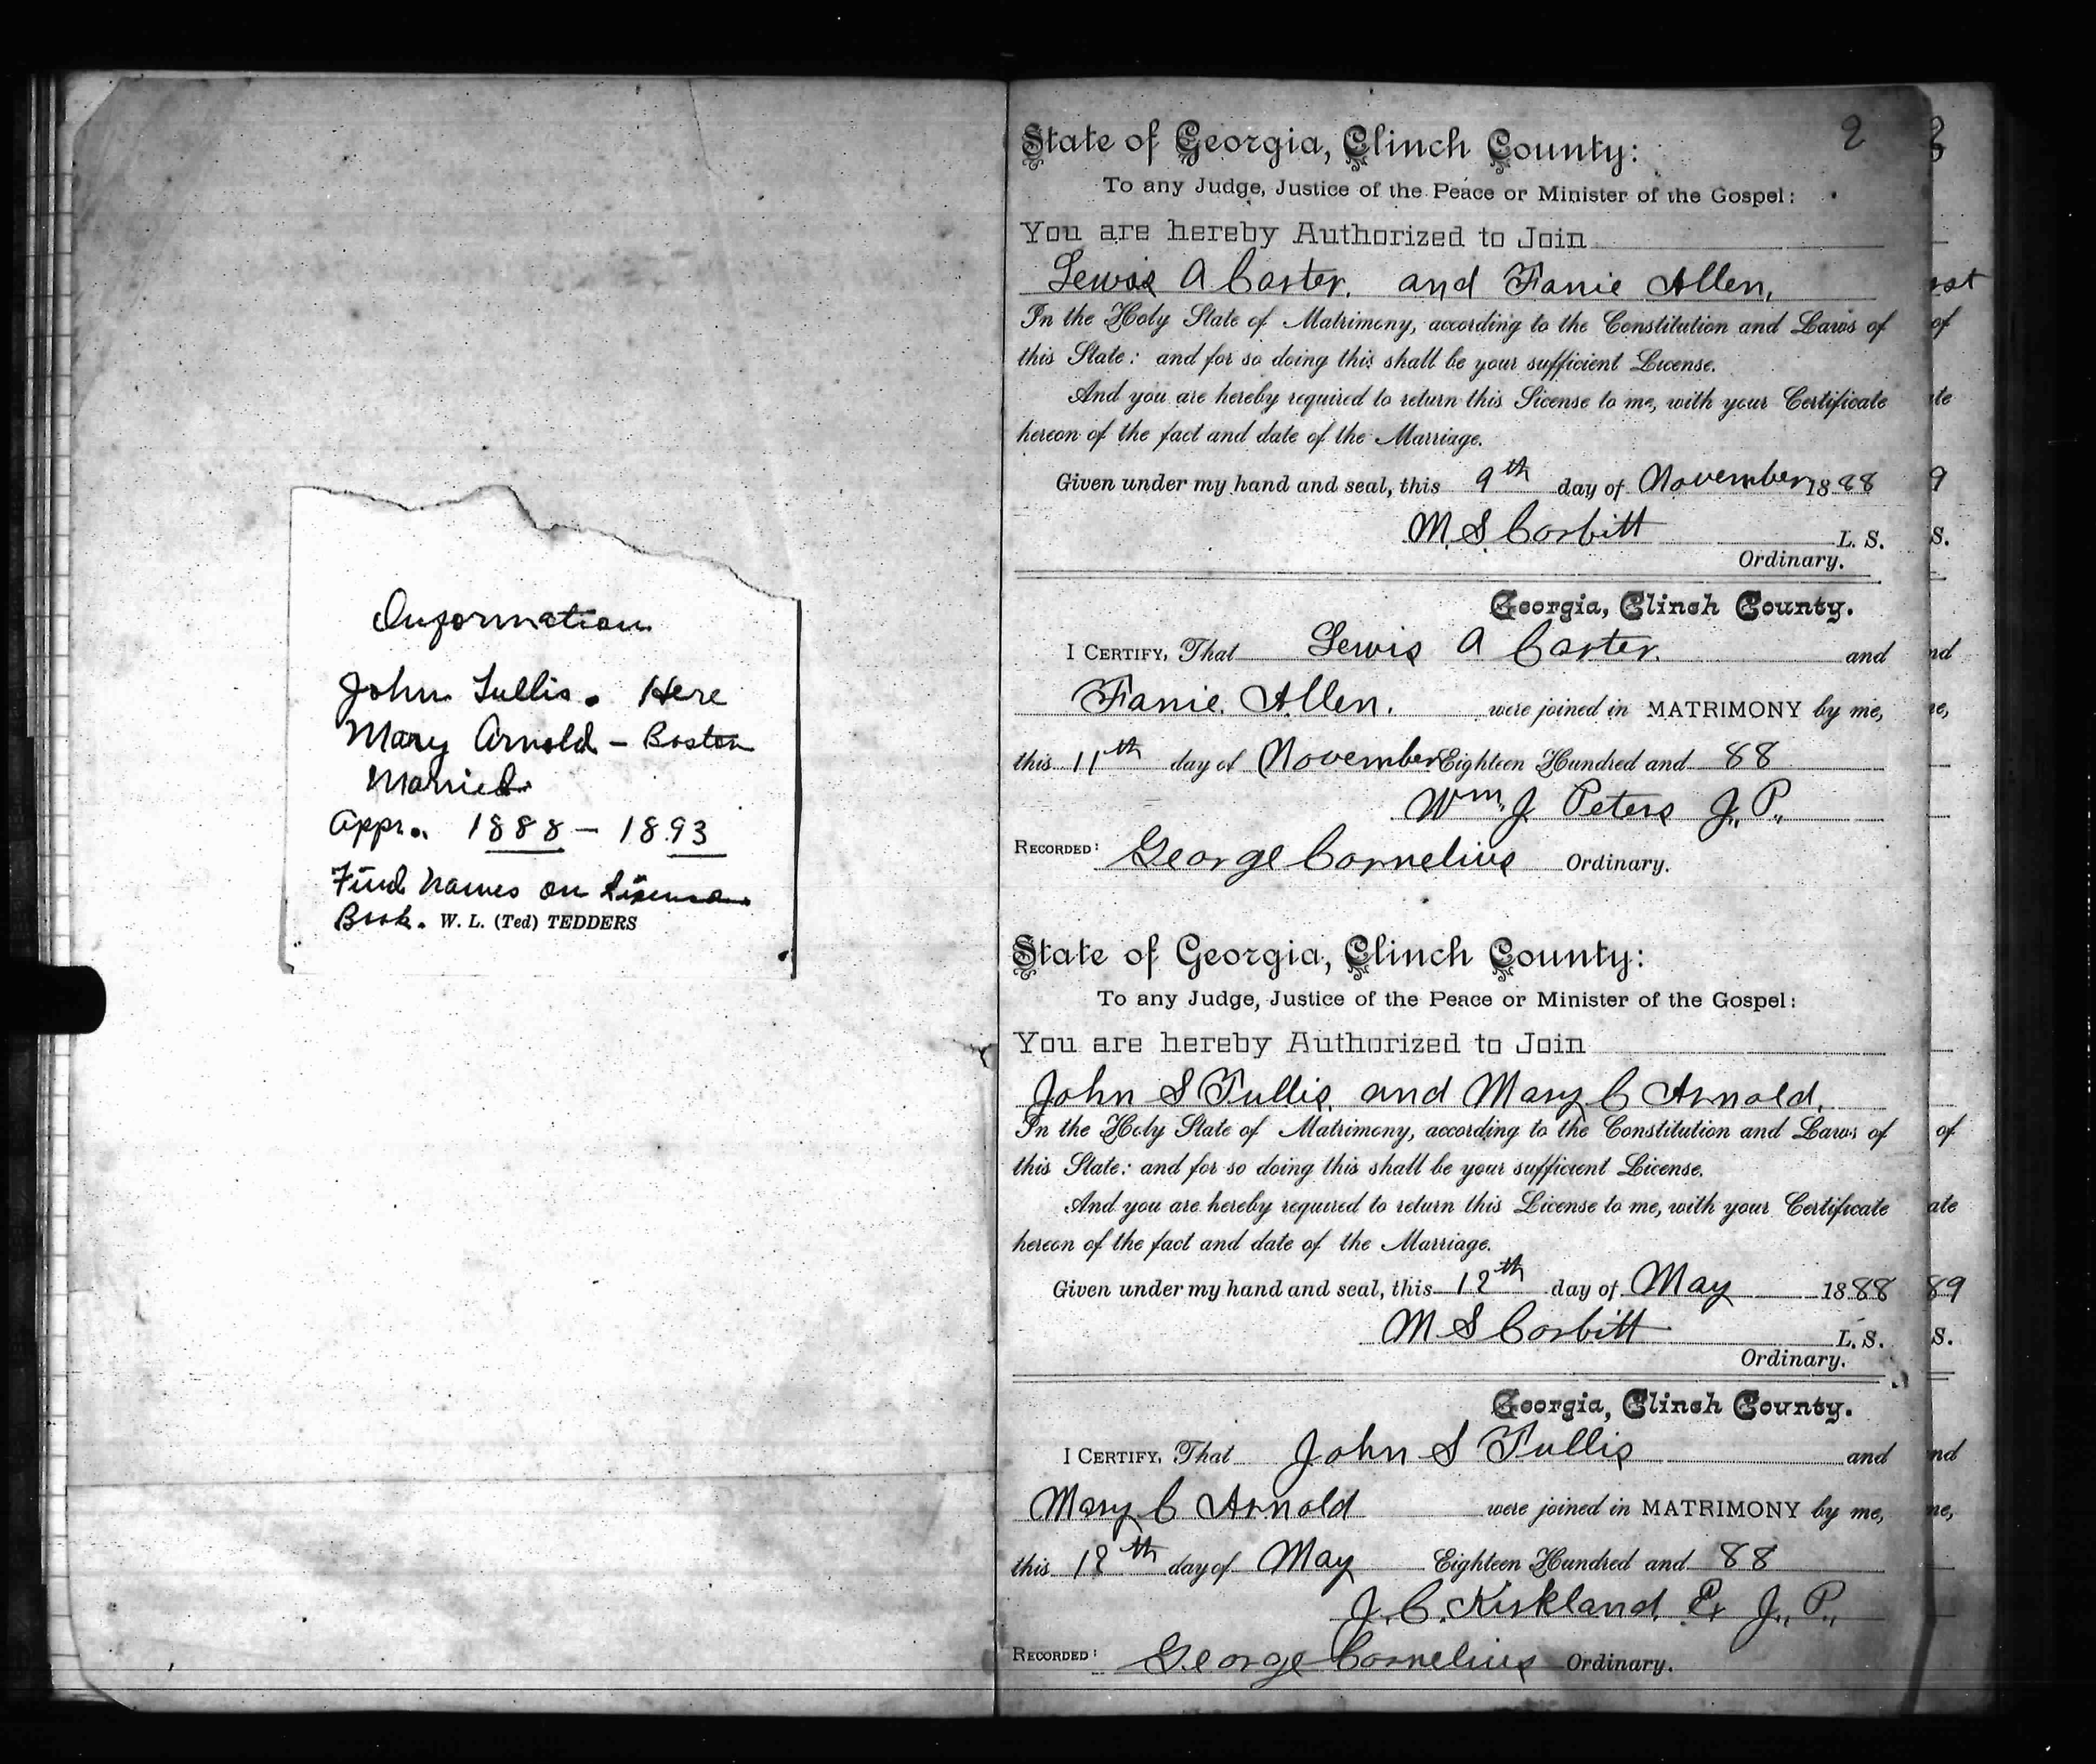 Information
John Tullis. Here
Mary Arnold - Boston
Married
Appr. 1888 - 1893
Find Names on License
Book. W. L. (Ted) TEDDERS
2
State of Georgia, Clinch County:
To any Judge, Justice of the Peace or Minister of the Gospel:
You are hereby Authorized to Join
Lewis A Carter. and Fanie Allen,
In the Holy State of Matrimony, according to the Constitution and Laws of
this State: and for so doing this shall be your sufficient License.
And you are hereby required to return this License to me, with your Certificate
hereon of the fact and date of the Marriage.
Given under my hand and seal, this 9th day of November 1888
M. S. Corbitt L. S.
Ordinary.
Georgia, Clinch County.
I CERTIFY, That Lewis A Carter. and
Fanie. Allen. were joined in MATRIMONY by me,
this 11th day of November Eighteen Hundred and 88
Wm. J. Peters J., P.,
RECORDED: George Cornelius Ordinary.
State of Georgia, Clinch County:
To any Judge, Justice of the Peace or Minister of the Gospel:
You are hereby Authorized to Join
John S Tullis, and Mary C Arnold,
In the Holy State of Matrimony, according to the Constitution and Laws of
this State: and for so doing this shall be your sufficient License.
And you are hereby required to return this License to me, with your Certificate
hereon of the fact and date of the Marriage.
Given under my hand and seal, this 12th day of May 1888
M S Corbitt L. S.
Ordinary.
Georgia, Clinch County.
I CERTIFY, That John S Tullis and
Mary C Arnold were joined in MATRIMONY by me,
this 12th day of May Eighteen Hundred and 88
J. C. Kirkland, J., P.,
RECORDED: George Cornelius Ordinary.
3
st
of
te
9
S.
nd
e,
of
ate
89
S.
nd
ne,